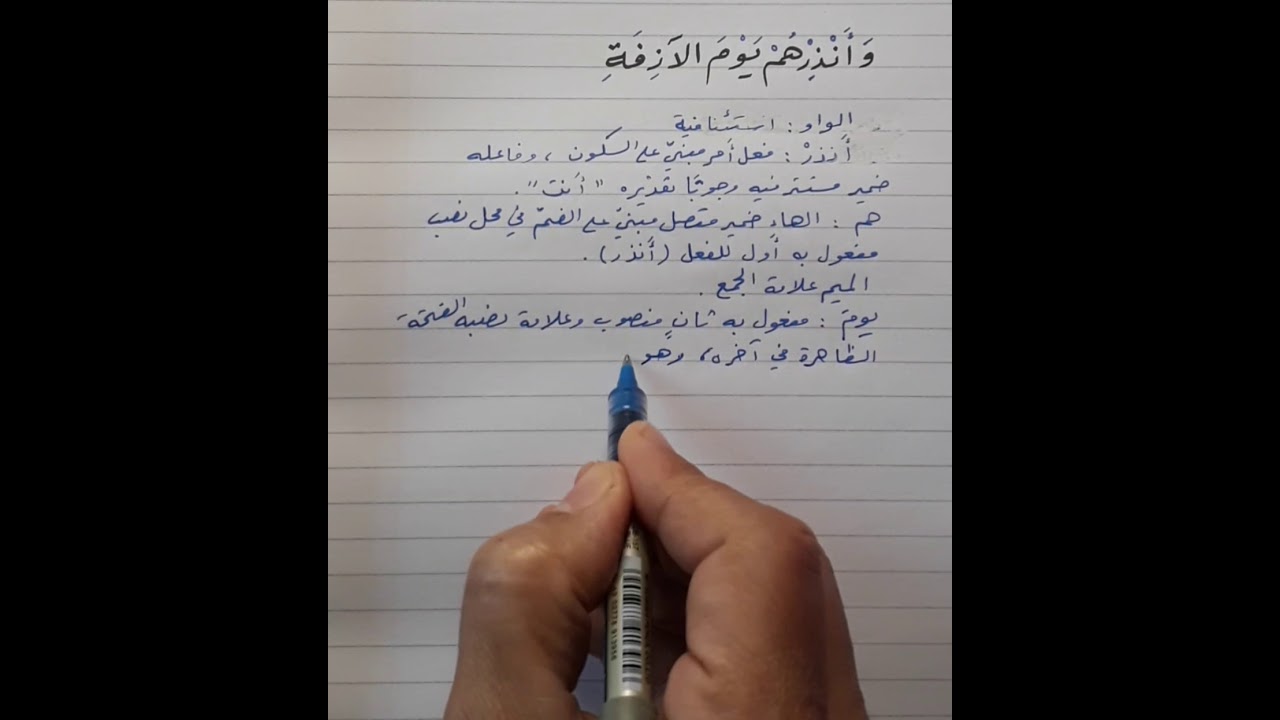 وَأَنْذِرْهُمْ يَوْمَ الآَزِفَةِ
الواو : استئنافية
أَنذرْ : فعل أمر مبنيّ على السكون ، وفاعله
ضمير مستتر فيه وجوبًا تقديره " أنت " .
هم : الهاء ضمير متصل مبنيّ على الضمّ في محل نصب
مفعول به أول للفعل (أَنذر) .
الميم علامة الجمع .
يومَ : مفعول به ثانٍ منصوب وعلامة نصبه الفتحة
الظاهرة في آخره ، وهو